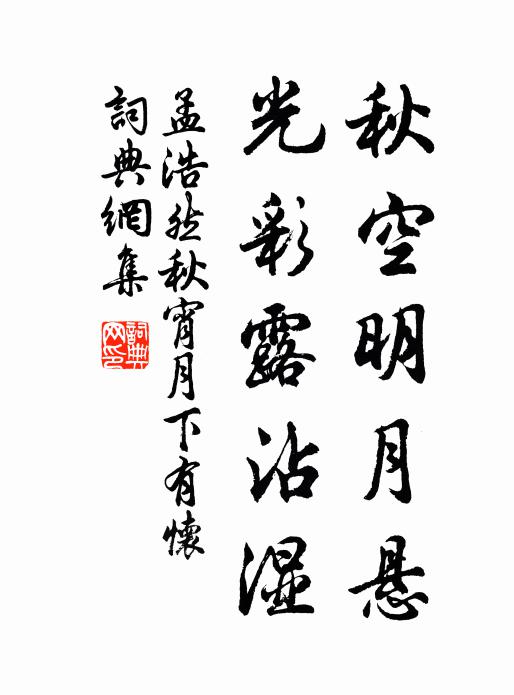 秋空明月悬
光彩露沾湿
孟浩然秋宵月下有懷
詞典網集
詞典网印